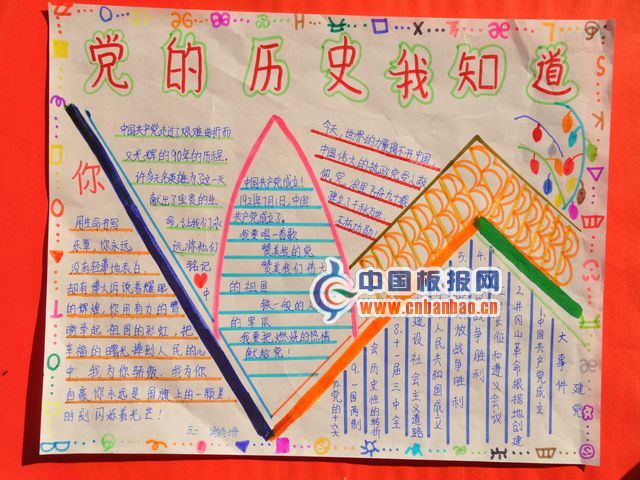 党的历史我知道
中国共产党走过了艰难曲折而
又光辉的90年的历程，
许多名英雄为了这一
献出了宝贵的生
命，让我们永
远将他们
铭记
中
你
用生命书写
乐章，你永远
没有轻薄地表白，
却有博大诉说着耀眼
的辉煌，你用有力的臂
膀举起祖国的彩虹，把
幸福的曙光捧到人民的心
中，我为你骄傲，我为你
自豪，你永远是国旗上的一颗星
时刻闪烁着光芒！
中国共产党成立！
1921年7月1日，中国
共产党成立了。
我要唱一首歌
赞美我的党
赞美我们伟大
的祖国
铁一般的人
的军队
我要把燃烧的热情
献给党！
今天，世界的力量离不开中国，
中国伟大的执政党受人敬
建立了千秋万世
大事件
建党
1.中国共产党成立
2.井冈山革命根据地创建
长征和遵义会议
4.
战争胜利
5.
放战争胜利
人民共和国成立
建设社会主义道路
8.十一届三中全
会历史性的转折
9.一国两制
党的十六
五一
中国板报网
www.cnbanbao.cn